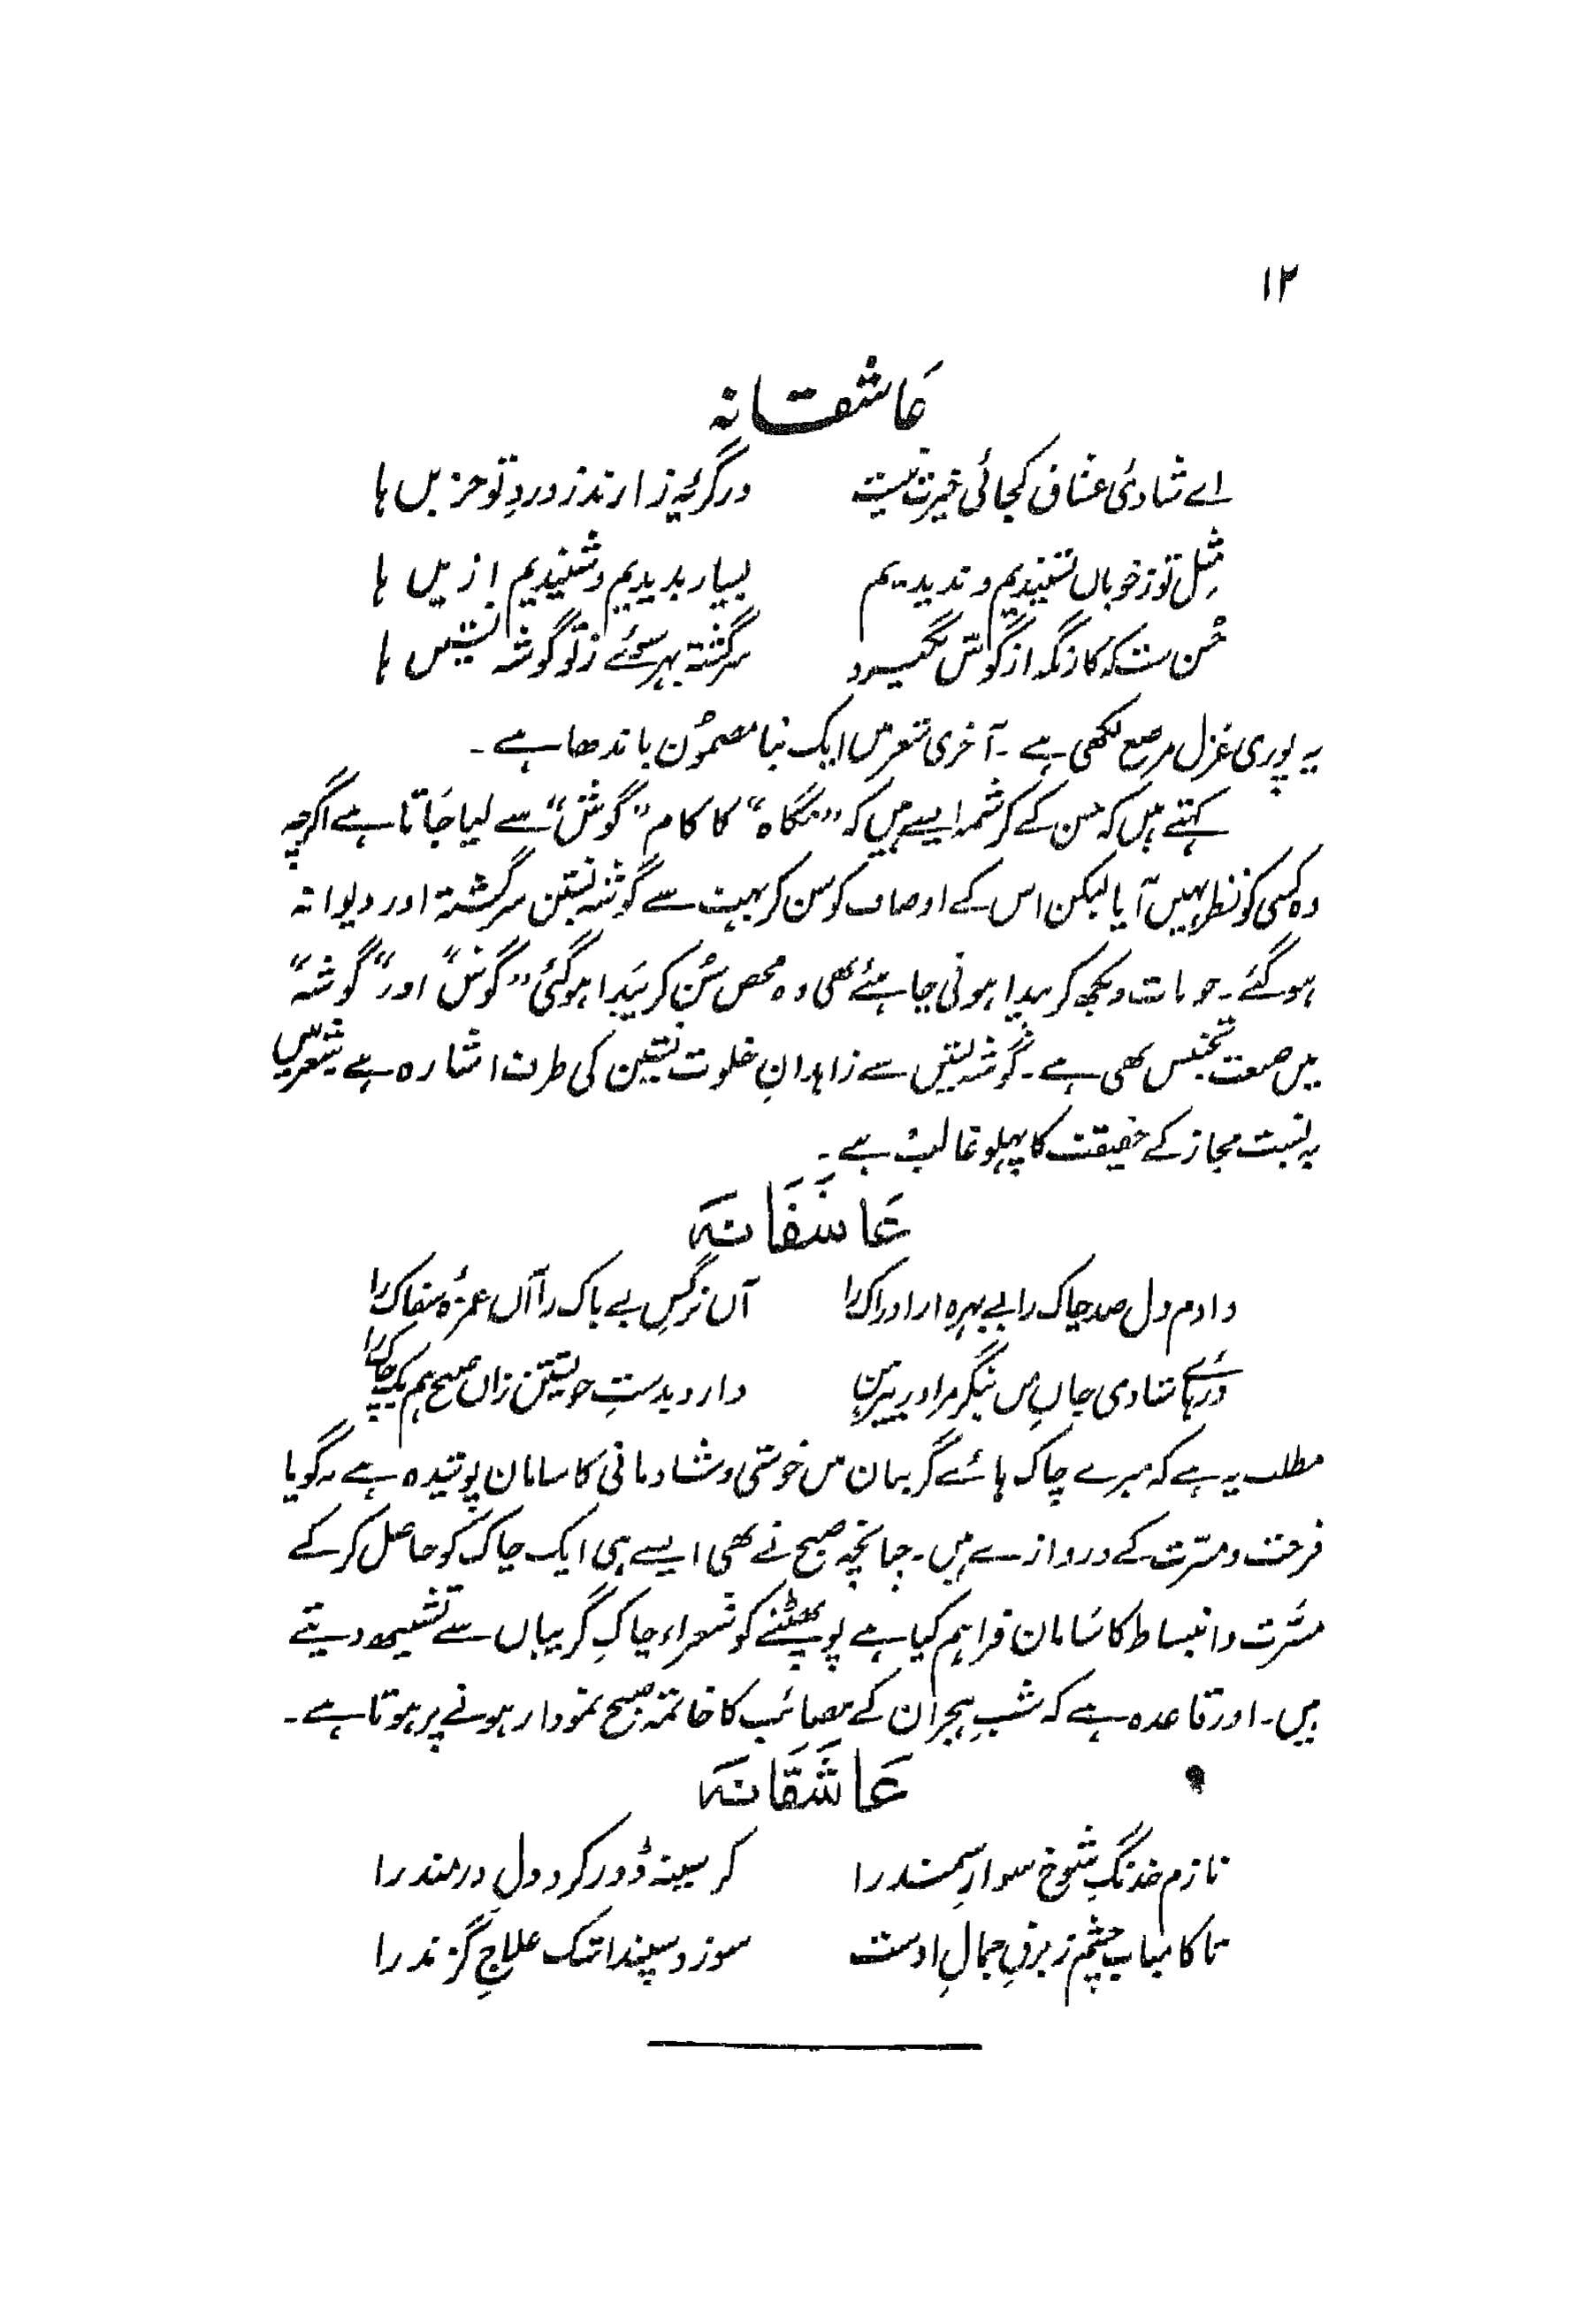 ۱۲
عاشقانہ
اے شادیٔ عشاق کجائی خبرت نیست در گریۂ زارند ز دردِ تو حزیں ہا
مثلِ تو ز خوباں نشنیدیم و ندیدیم بسیار بدیدیم و شنیدیم ازیں ہا
حُسن ست کہ کارِ نگہ از گوش بگیرد سرگشتہ بہر سوئے ز تو گوشہ نشیں ہا
یہ پوری غزل مرصع لکھی ہے۔ آخری شعر میں ایک نیا مضمُون باندھا ہے۔
کہتے ہیں کہ حسن کے کرشمہ ایسے ہیں کہ ”نگاہ“ کا کام ”گوش“ سے لیا جَاتا ہے اگرچہ
وہ کسی کو نظر نہیں آیا لیکن اس کے اوصاف کو سن کر بہت سے گوشہ نشین سرگشتہ اور دیوانہ
ہو گئے۔ جو بات دیکھ کر پیدا ہونی چاہئے تھی وہ محض سُن کر پَیدا ہو گئی ”گوش“ اور ”گوشہ“
میں صنعت تجنیس بھی ہے۔ گوشہ نشیں سے زاہدانِ خلوت نشین کی طرف اشارہ ہے شعر میں
بہ نسبت مجاز کے حقیقت کا پہلو غالب ہے۔
عَاشقَانَہ
دادم دل صد چاک را بے بہرہ از ادراک را آں نرگسِ بے باک را آں غمزۂ سفاک را
دَرہائے شادی جانِ من بنگر مرا در پیرہن دارد بدستِ خویشتن زاں صبح ہم یک چاک را
مطلب یہ ہے کہ میرے چاک ہائے گریبان میں خوشی و شادمانی کا سامان پوشیدہ ہے۔ گویا
فرحت و مسرّت کے دروازے ہیں۔ چنانچہ صبح نے بھی ایسے ہی ایک چاک کو حاصل کر کے
مسَّرت و انبساط کا سَامان فراہم کیا ہے پو پھٹنے کو شعراء چاکِ گریباں سے تشبیہ دیتے
ہیں۔ اور قاعدہ ہے کہ شبِ ہجران کے مصائب کا خاتمہ صبح نمودار ہونے پر ہوتا ہے۔
عَاشَقَانَہ
نازم خدنگِ شوخ سوارِ سمند را کز سینہ دُور کرد دلِ دردمند را
تا کامیاب چشم ز برقِ جمالِ اوست سوزد سپندِ اشک علاجِ گزند را